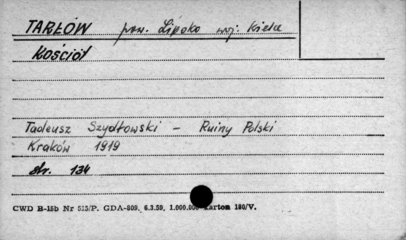 TARŁÓW pow. Lipsko woj. Kielce
Kościół
Tadeusz Szydłowski - Ruiny Polski
Kraków 1919
str. 134
CWD H-15b Nr 515/P. GDA-809. 6.3.59. 1.000.000 Karton 180/V.